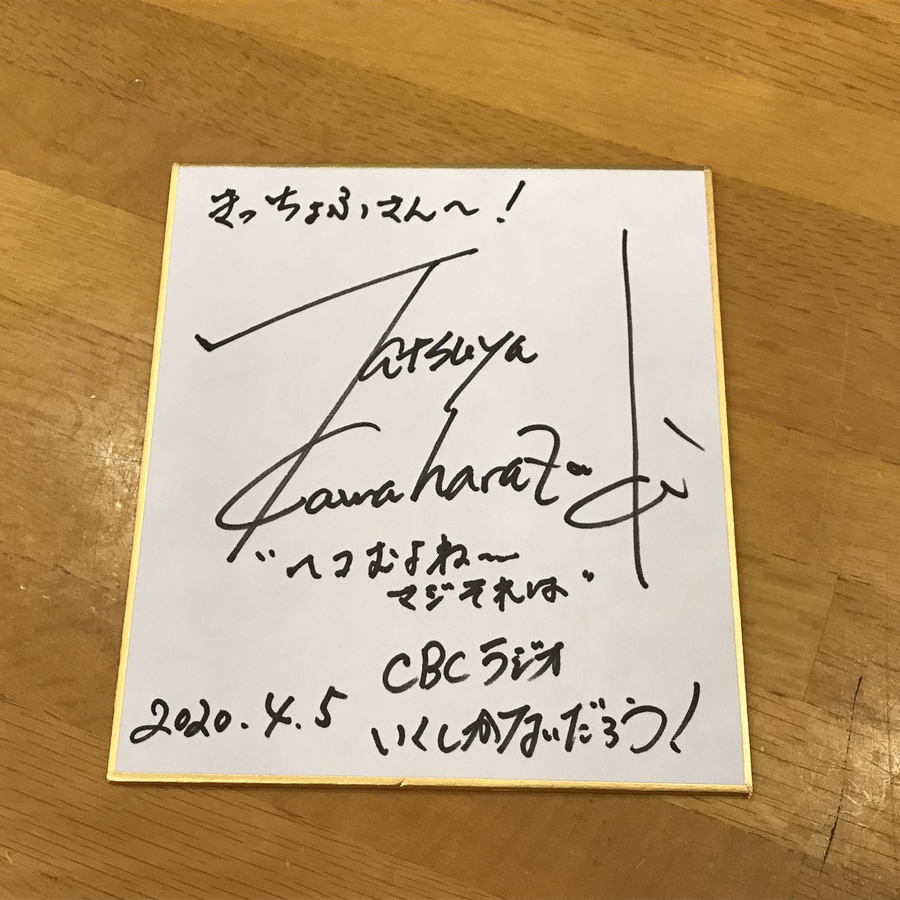 きっちょふさん〜!
Tatsuya
Kawaharazuki
"ヘコむよね〜
マジそれは"
CBCラジオ
いくしかないだろう!
2020.4.5